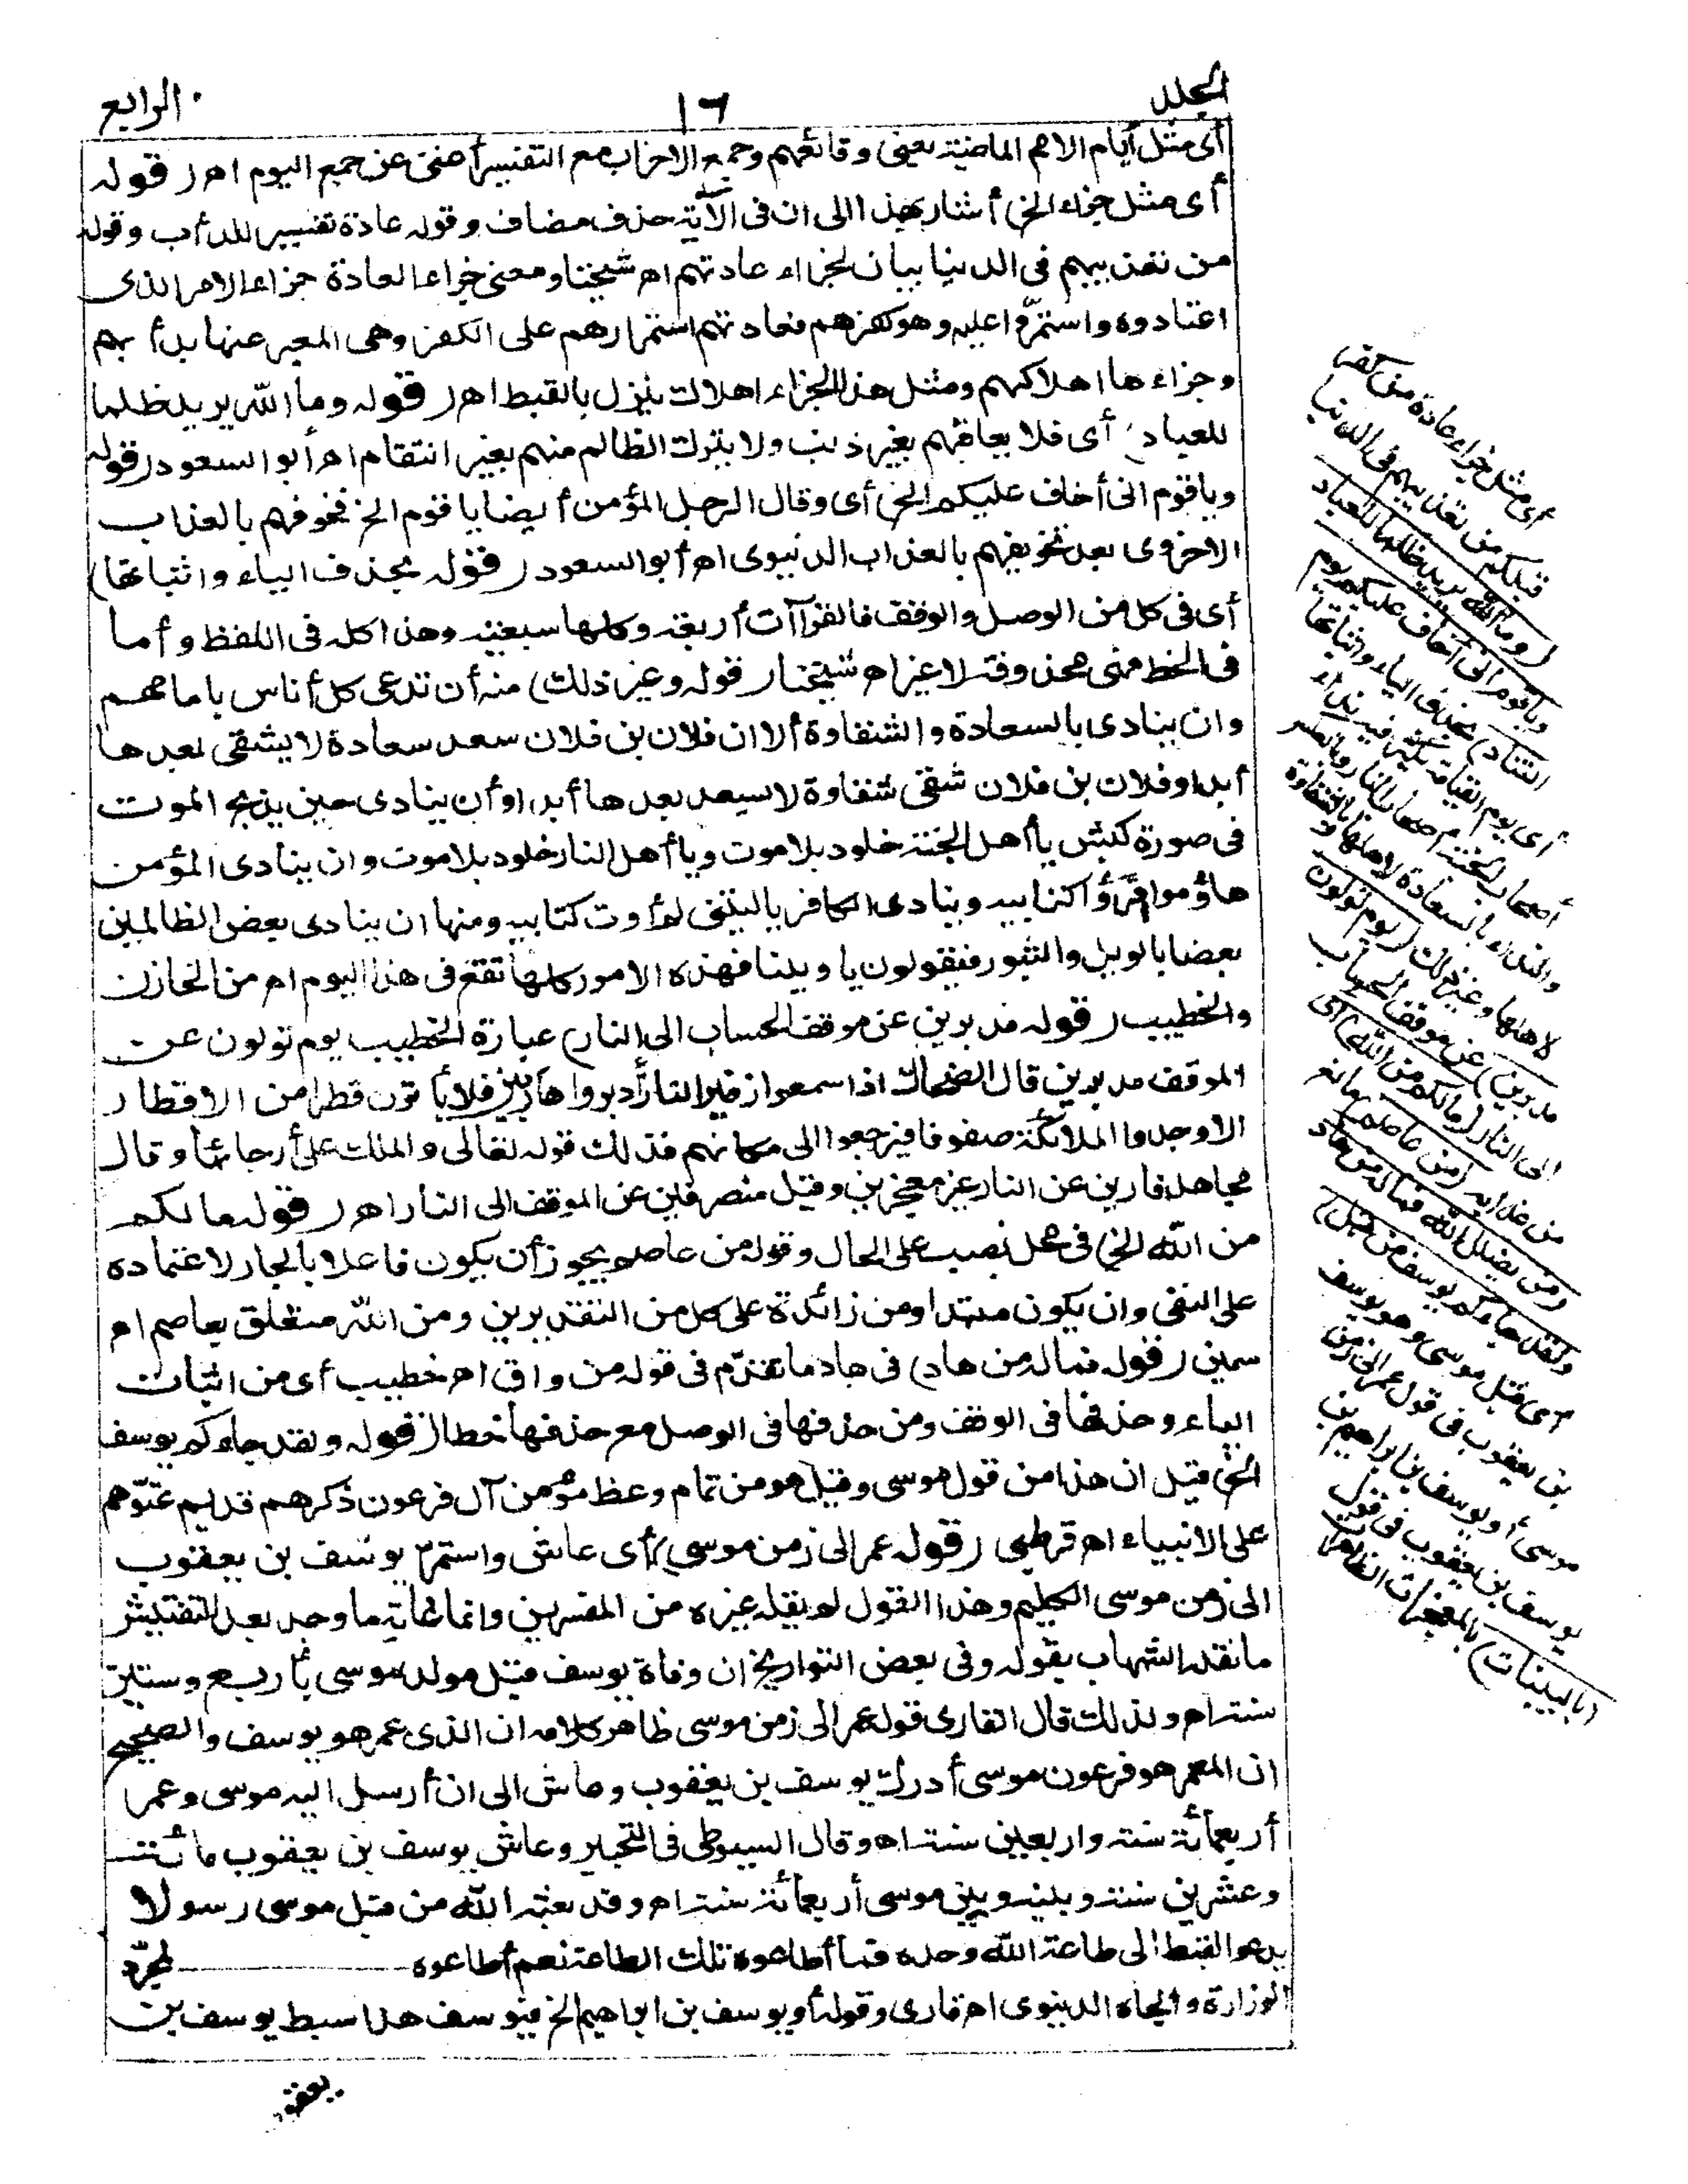 المجلد ١٦ الرابع
أى مثل أيام الامم الماضية يعنى وقائعهم وجمع الاحزاب مع التفسير أغنى عن جمع اليوم اه (قوله
أى مثل جزاء الخ) أشار بهذا الى ان فى الآية حذف مضاف وقوله عادة تفسير للدأب وقوله
من تعذيبهم فى الدنيا بيان لجزاء عادتهم اه شيخنا ومعنى جزاء العادة جزاء الامر الذى
اعتادوه واستمرّوا عليه وهو كفرهم فعادتهم استمرارهم على الكفر وهى المعبر عنها بدأبهم
وجزاءها اهلاكهم ومثل هذا الجزاء اهلاك ينزل بالقبط اه (قوله وما الله يريد ظلما
للعباد) أى فلا يعاقبهم بغير ذنب ولا يترك الظالم منهم بغير انتقام اه أبو السعود (قوله
وياقوم انى أخاف عليكم الخ) أى وقال الرجل المؤمن أيضا ياقوم الخ فخوفهم بالعذاب
الاخروى بعد تخويفهم بالعذاب الدنيوى اه أبو السعود (قوله بحذف الياء واثباتها)
أى فى كل من الوصل والوقف فالقراآت أربعة وكلها سبعية وهذا كله فى اللفظ وأما
فى الخط فهى محذوفة لا غير اه شيخنا (قوله وغير ذلك) منه أن تدعى كل أناس بامامهم
وان ينادى بالسعادة والشقاوة ألا ان فلان بن فلان سعد سعادة لا يشقى بعدها
أبدا وفلان بن فلان شقى شقاوة لا يسعد بعدها أبدا وأن ينادى حين يذبح الموت
فى صورة كبش يا أهل الجنة خلود بلا موت ويا أهل النار خلود بلا موت وان ينادى المؤمن
هاؤم اقرؤا كتابيه وينادى الكافر ياليتنى لم أوت كتابيه ومنها ان ينادى بعض الظالمين
بعضا بالويل والثبور فيقولون يا ويلنا فهذه الامور كلها تقع فى هذا اليوم اه من الخازن
والخطيب (قوله مدبرين عن موقف الحساب الى النار) عبارة الخطيب يوم تولون عن
الموقف مدبرين قال الضحاك اذا سمعوا زفير النار أدبروا هاربين فلا يأتون قطرا من الاقطار
الا وجدوا الملائكة صفوفا فيرجعوا الى مكانهم فذلك قوله تعالى والملك على أرجائها وقال
مجاهد فارين عن النار غير معجزين وقيل منصرفين عن الموقف الى النار اه (قوله مالكم
من الله الخ) فى محل نصب على الحال وقوله من عاصم يجوز أن يكون فاعلا بالجار لاعتماده
على النفى وان يكون مبتدا ومن زائدة على كل من التقديرين ومن الله متعلق بعاصم اه
سمين (قوله فماله من هاد) فى هاد ما تقدّم فى قوله من واق اه خطيب أى من اثبات
الياء وحذفها فى الوقف ومن حذفها فى الوصل مع حذفها خطا (قوله ولقد جاءكم يوسف
الخ) قيل ان هذا من قول موسى وقيل هو من تمام وعظ مؤمن آل فرعون ذكرهم قديم عتوّهم
على الانبياء اه قرطبى (قوله عمر الى زمن موسى) أى عاش واستمرّ يوسف بن يعقوب
الى زمن موسى الكليم وهذا القول لم يقله غيره من المفسرين وانما غاية ما وجد بعد التفتيش
ما نقله الشهاب بقوله وفى بعض التواريخ ان وفاة يوسف قبل مولد موسى بأربع وستين
سنة اه ولذلك قال القارى قوله عمر الى زمن موسى ظاهر كلامه ان الذى عمر هو يوسف والصحيح
ان المعمر هو فرعون موسى أدرك يوسف بن يعقوب وعاش الى ان أرسل اليه موسى وعمر
أربعمائة سنة واربعين سنة اه وقال السيوطى فى التحبير وعاش يوسف بن يعقوب مائة
وعشرين سنة وبينه وبين موسى أربعمائة سنة اه وقد بعثه الله من قبل موسى رسولا
يدعو القبط الى طاعة الله وحده فما أطاعوه تلك الطاعة نعم أطاعوه لمجرّد
الوزارة والجاه الدنيوى اه قارى وقوله أو يوسف بن ابراهيم الخ فيوسف هذا سبط يوسف بن
يعقو
أى مثل جزاء عادة من كفر
قبلكم من تعذيبهم فى الدنيا
(وما الله يريد ظلما للعباد
وياقوم انى أخاف عليكم يوم
التناد) بحذف الياء واثباتها
أى يوم القيامة يكثر فيه نداء
أصحاب الجنة أصحاب النار وبالعكس
والنداء بالسعادة لاهلها والشقاوة
لاهلها وغير ذلك (يوم تولون
مدبرين) عن موقف الحساب
الى النار (مالكم من الله) أى
من عذابه (من عاصم) مانع
(ومن يضلل الله فماله من هاد
ولقد جاءكم يوسف من قبل)
أى قبل موسى وهو يوسف
بن يعقوب فى قول عمر الى زمن
موسى أو يوسف بن ابراهيم بن
يوسف بن يعقوب فى قول
(بالبينات) بالمعجزات الظاهرات